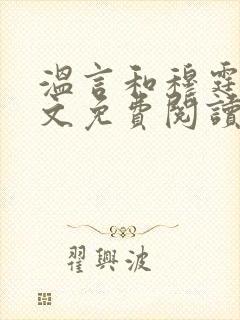 溫言和穆霆
文免費閱讀
翟興波